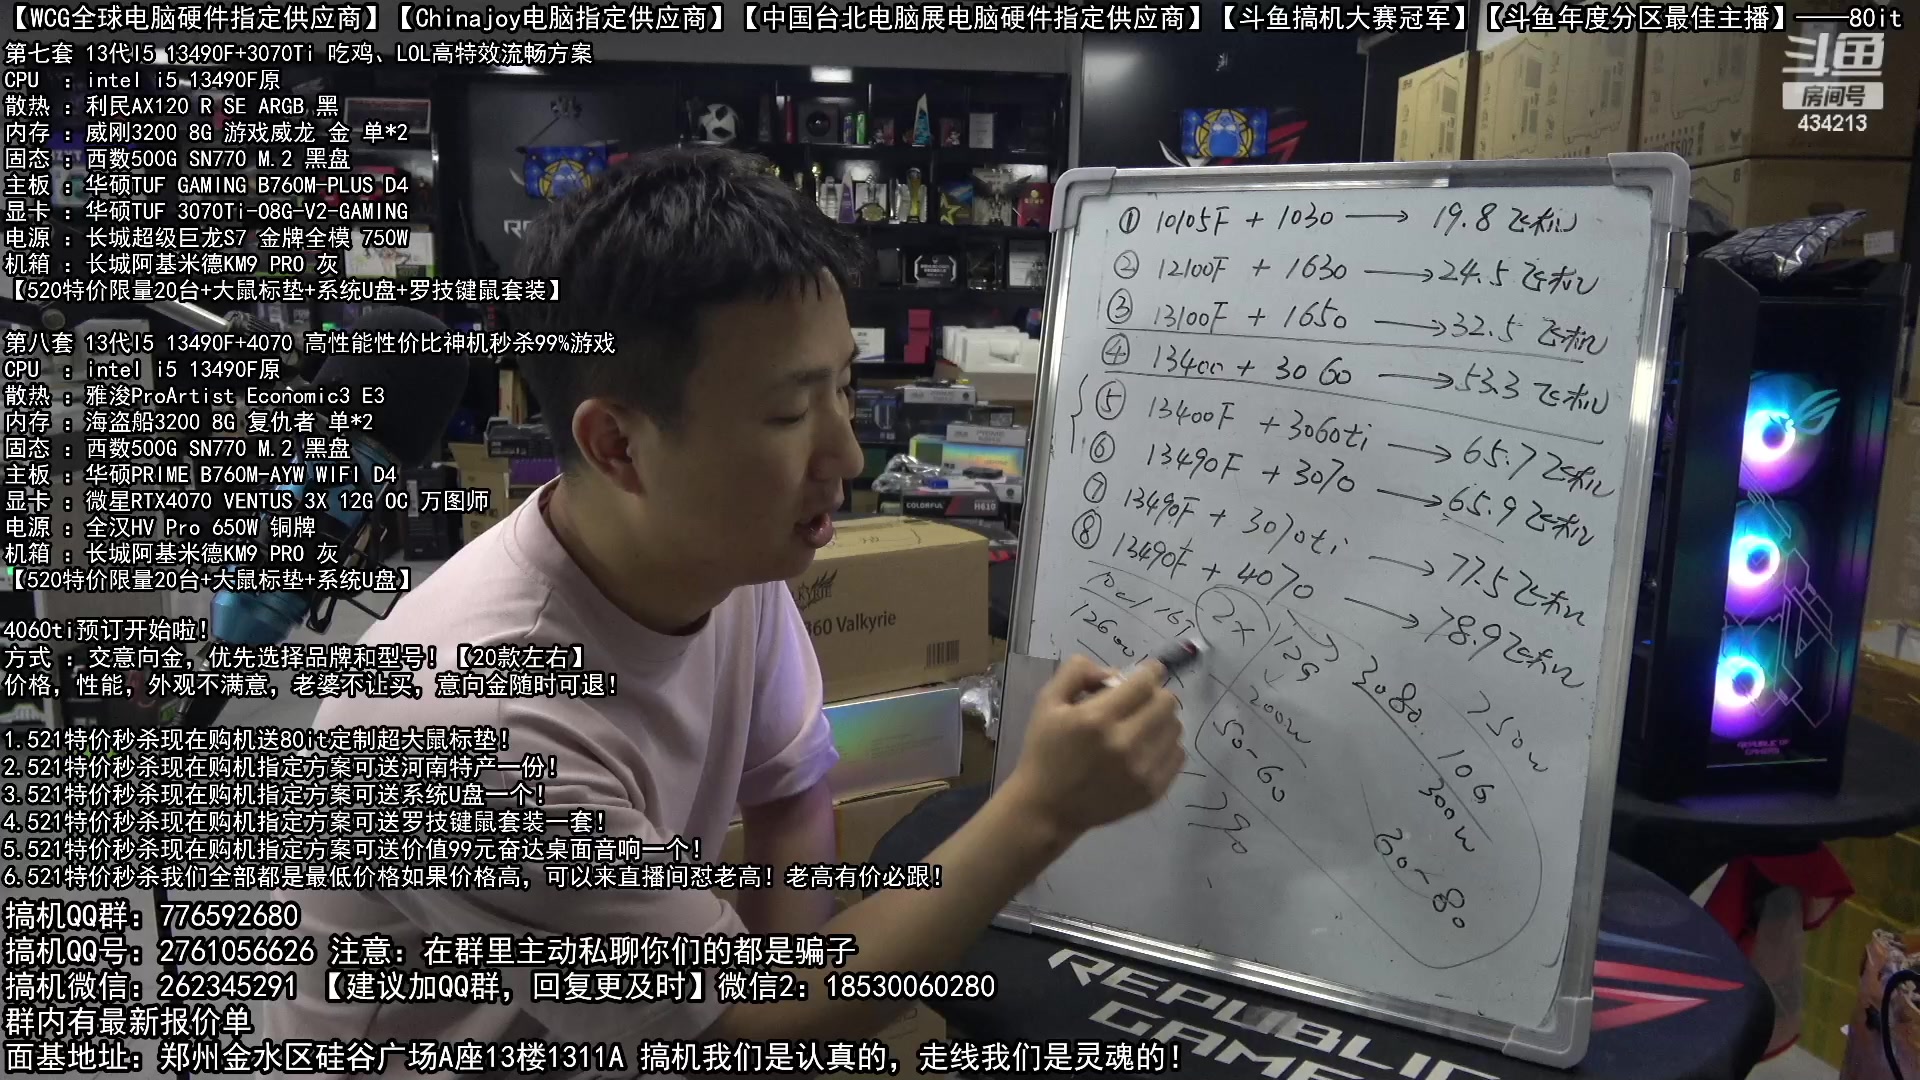 【WCG全球电脑硬件指定供应商】【Chinajoy电脑指定供应商】【中国台北电脑展电脑硬件指定供应商】【斗鱼搞机大赛冠军】【斗鱼年度分区最佳主播】——80it
第七套 13代I5 13490F+3070Ti 吃鸡、LOL高特效流畅方案
CPU ：intel i5 13490F原
散热 ：利民AX120 R SE ARGB 黑
内存 ：威刚3200 8G 游戏威龙 金 单*2
固态 ：西数500G SN770 M.2 黑盘
主板 ：华硕TUF GAMING B760M-PLUS D4
显卡 ：华硕TUF 3070Ti-O8G-V2-GAMING
电源 ：长城超级巨龙S7 金牌全模 750W
机箱 ：长城阿基米德KM9 PRO 灰
【520特价限量20台+大鼠标垫+系统U盘+罗技键鼠套装】
第八套 13代I5 13490F+4070 高性能性价比神机秒杀99%游戏
CPU ：intel i5 13490F原
散热 ：雅浚ProArtist Economic3 E3
内存 ：海盗船3200 8G 复仇者 单*2
固态 ：西数500G SN770 M.2 黑盘
主板 ：华硕PRIME B760M-AYW WIFI D4
显卡 ：微星RTX4070 VENTUS 3X 12G OC 万图师
电源 ：全汉HV Pro 650W 铜牌
机箱 ：长城阿基米德KM9 PRO 灰
【520特价限量20台+大鼠标垫+系统U盘】
4060ti预订开始啦！
方式 ：交意向金，优先选择品牌和型号！【20款左右】
价格，性能，外观不满意，老婆不让买，意向金随时可退！
1.521特价秒杀现在购机送80it定制超大鼠标垫！
2.521特价秒杀现在购机指定方案可送河南特产一份！
3.521特价秒杀现在购机指定方案可送系统U盘一个！
4.521特价秒杀现在购机指定方案可送罗技键鼠套装一套！
5.521特价秒杀现在购机指定方案可送价值99元奋达桌面音响一个！
6.521特价秒杀我们全部都是最低价格如果价格高，可以来直播间怼老高！老高有价必跟！
搞机QQ群：776592680
搞机QQ号：2761056626 注意：在群里主动私聊你们的都是骗子
搞机微信：262345291 【建议加QQ群，回复更及时】微信2：18530060280
群内有最新报价单
面基地址：郑州金水区硅谷广场A座13楼1311A 搞机我们是认真的，走线我们是灵魂的！
斗鱼
房间号
434213
① 10105F + 1030 → 19.8 飞机
② 12100F + 1630 → 24.5 飞机
③ 13100F + 1650 → 32.5 飞机
④ 13400 + 3060 → 53.3 飞机
⑤ 13400F + 3060ti → 65.7 飞机
⑥ 13490F + 3070 → 65.9 飞机
⑦ 13490F + 3070ti → 77.5 飞机
⑧ 13490F + 4070 → 78.9 飞机
2x
12G
200w
50-60
3080
750w
10G
300w
60-80
COLORFUL
H610
360 Valkyrie
REPUBLIC
GAME